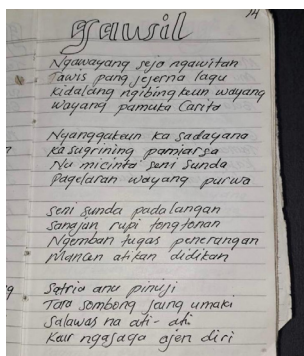 14
Gawil
Ngawayang seja ngawitan
Tawis pang jejerna lagu
Kidalang ngibingkeun wayang
wayang pamuka Carita
Nyanggakeun ka Sadayana
kasugrining pamiarsa
Nu micinta seni Sunda
Pagelaran wayang purwa
Seni Sunda padalangan
Sanajan rupi tongtonan
Ngemban tugas penerangan
Mancan atikan didikan
Satria anu pinuji
Tara Sombong jeung umaki
Salawas na ati-ati
Keur ngajaga ajen diri